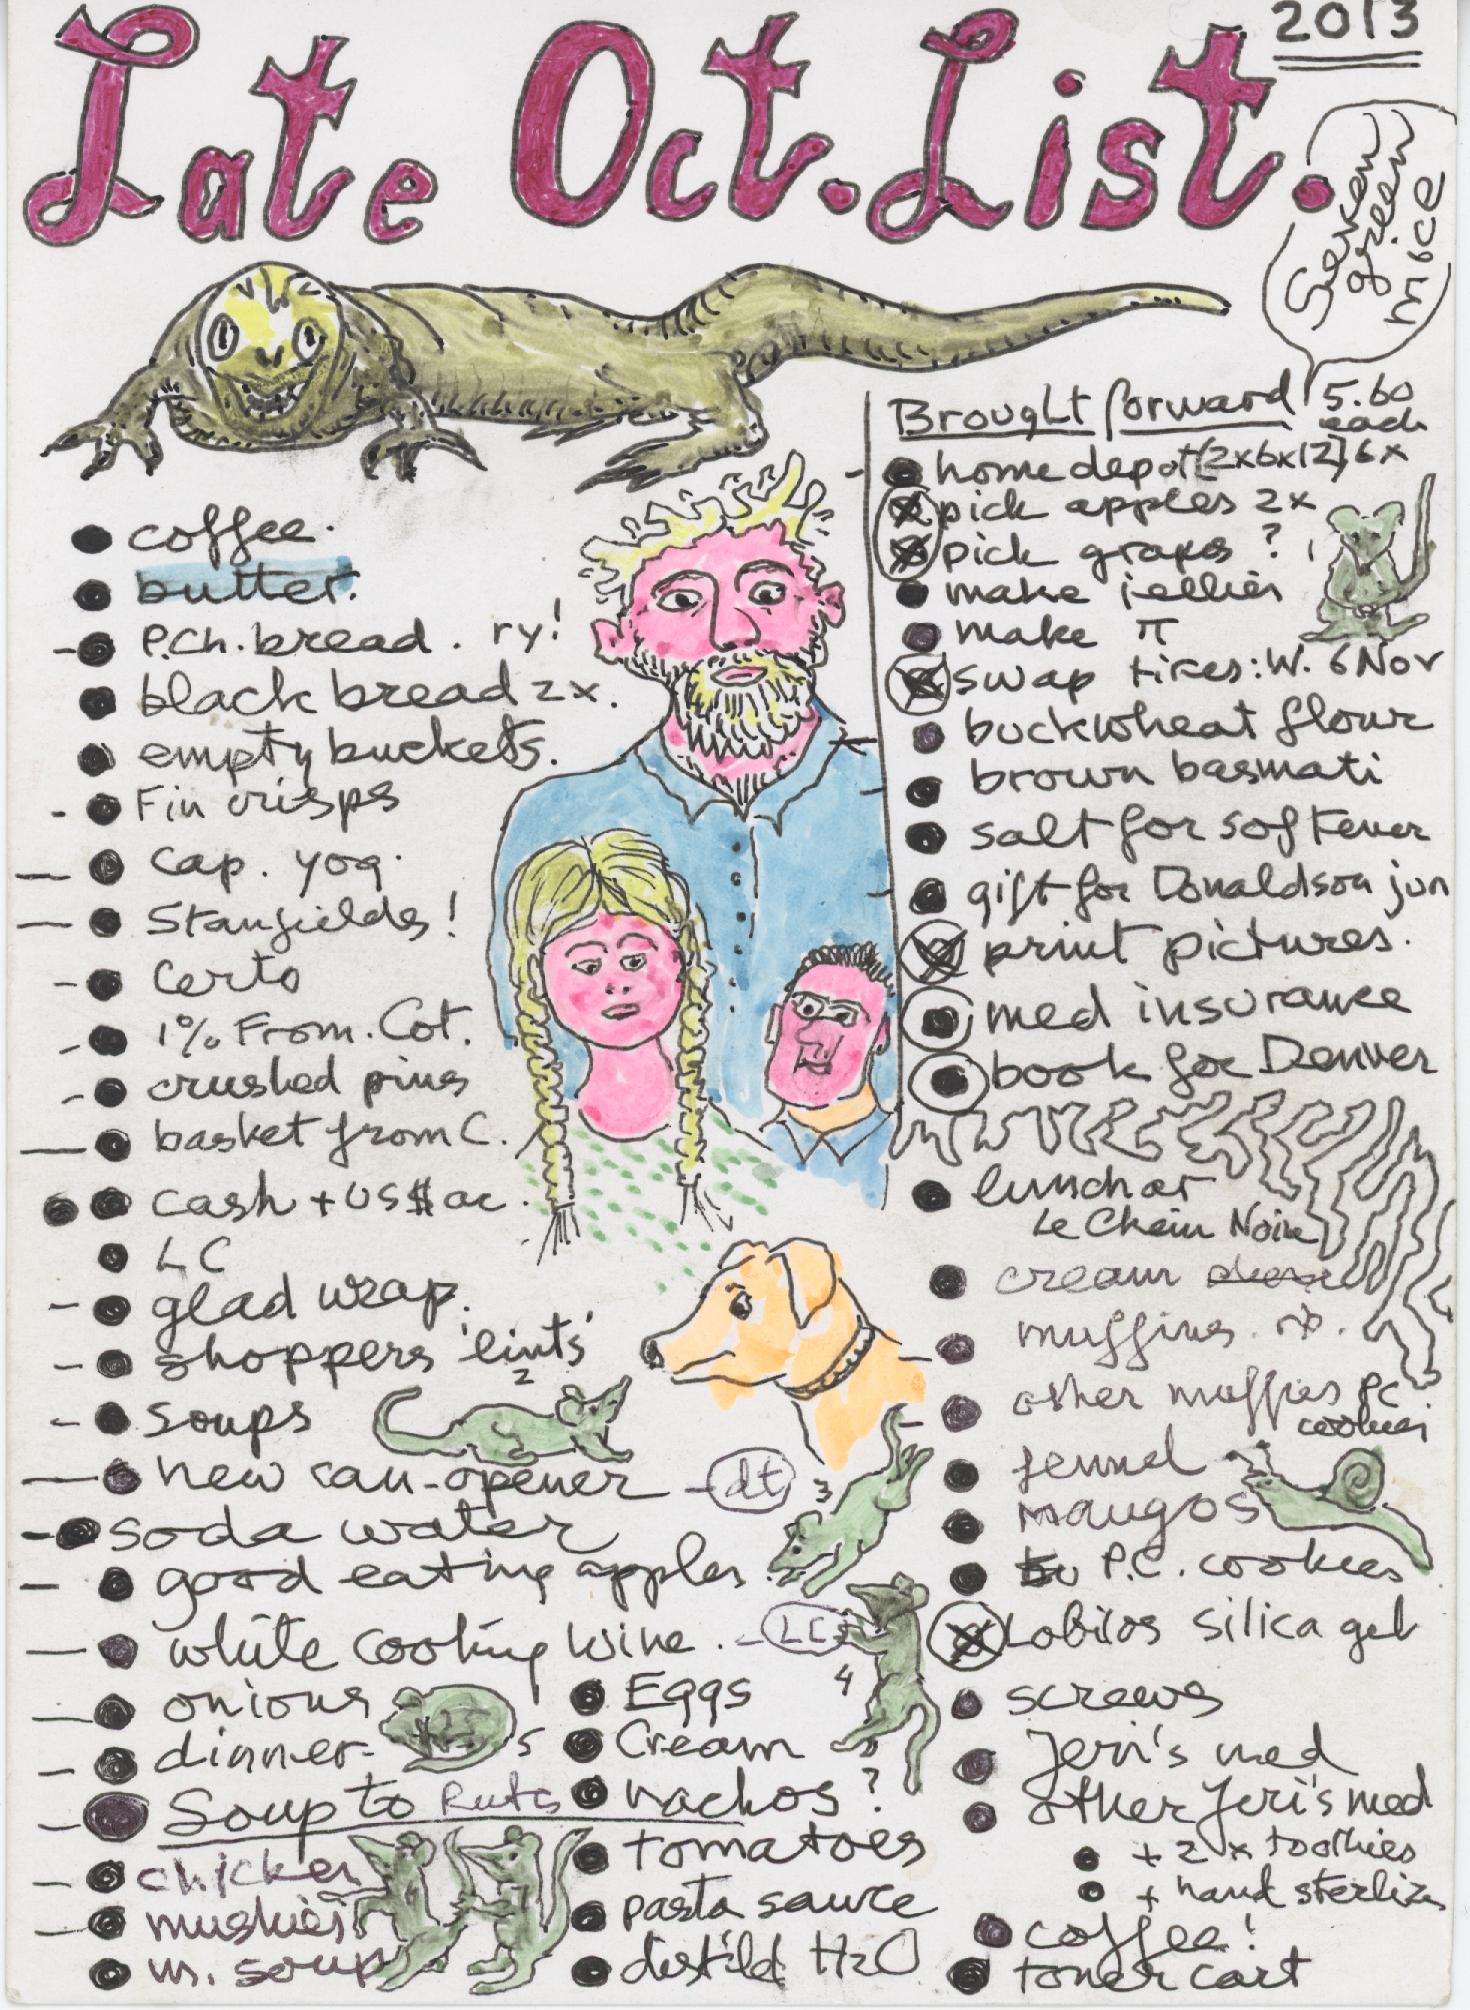 Late Oct. List.
2013
Seven
green
mice
coffee.
butter.
P.Ch. bread. ry!
black bread 2x.
empty buckets.
Fin crisps
Cap. yog.
Stanfields!
Certo
1% From. Cot.
crushed pins
basket from C.
cash + US$ ac.
LC
glad wrap.
shoppers 'lints'
2
soups
new can-opener - dt
3
soda water
good eating apples.
white cooking wine. - LC
4
onions
dinner-
5
Soup to Ruts
chicken
mushies
m. soup
Eggs
Cream
nachos?
tomatoes
pasta sauce
distild H2O
Brought forward
5.60
each
home depot [2x6x12] 6x
pick apples 2x
pick grapes ?
1
make jellies
make π
swap tires: W. 6 Nov
buckwheat flour
brown basmati
salt for softener
gift for Donaldson jun
print pictures.
med insurance
book for Denver
lunch at
Le Chein Noir
cream
muffins.
other muffies PC
cookies
fennel
mangos
P.C. cookies
Lobilos silica gel
screws
Jeri's med
other Jeri's med
+ 2 x toothies
+ hand steriliz
coffee!
toner cart